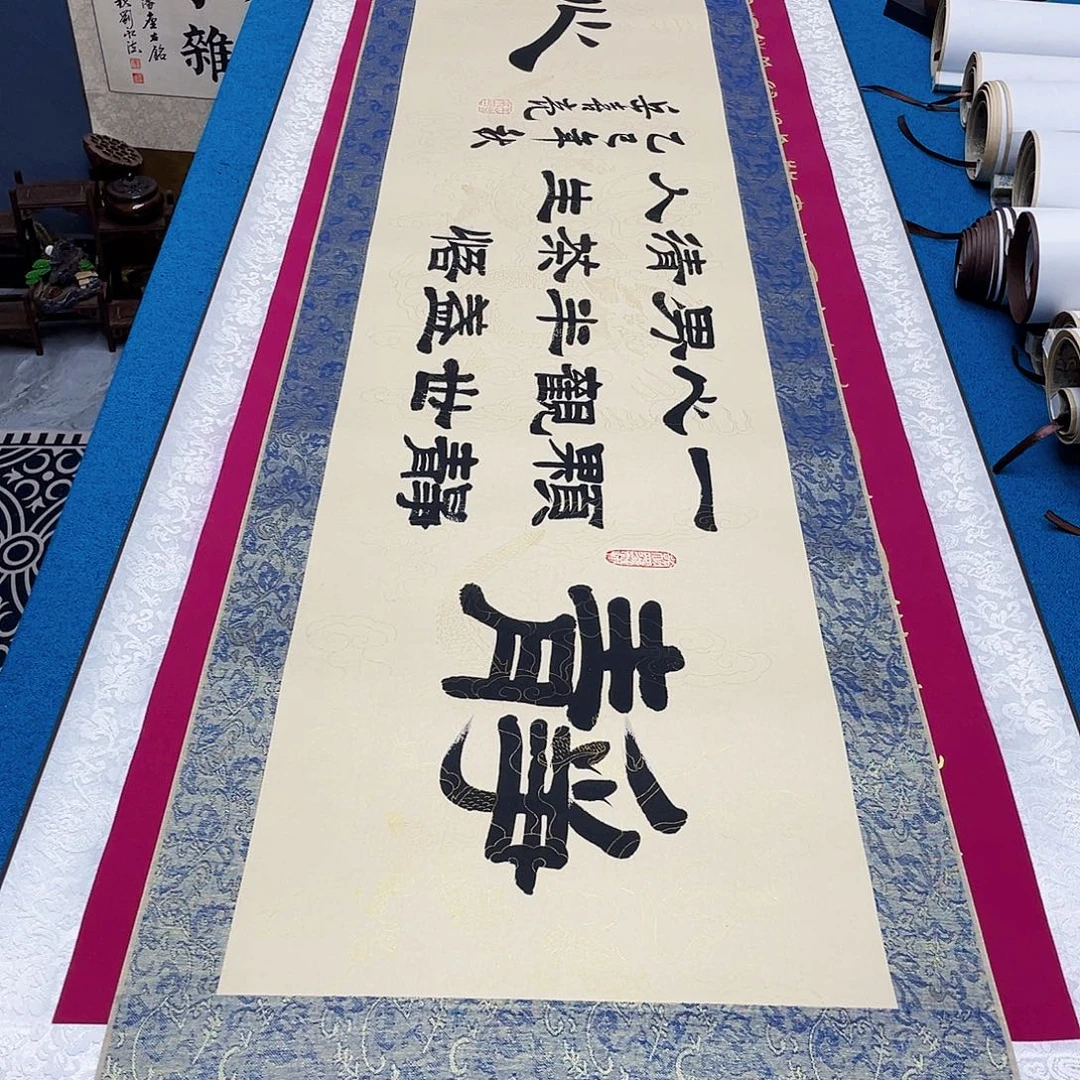 靜心
一顆靜
心觀世
界半盞
清茶悟
人生
乙巳年秋
雜
座右銘